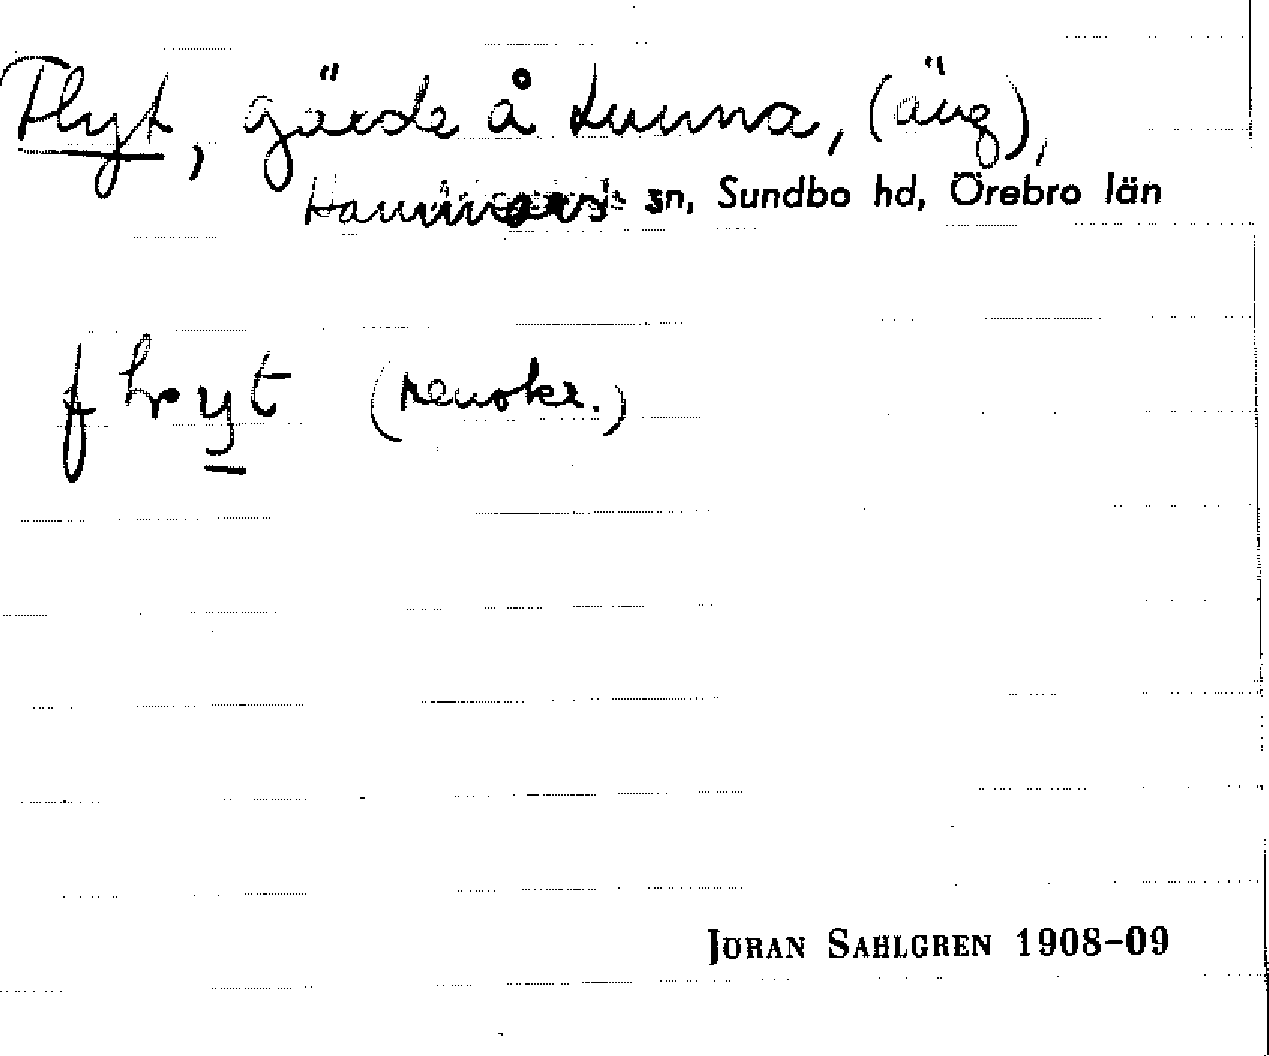 Flyt, gärde å Lunna, (äng),
Hammars sn, Sundbo hd, Örebro län
f yt
JÖRAN SAHLGREN 1908–09